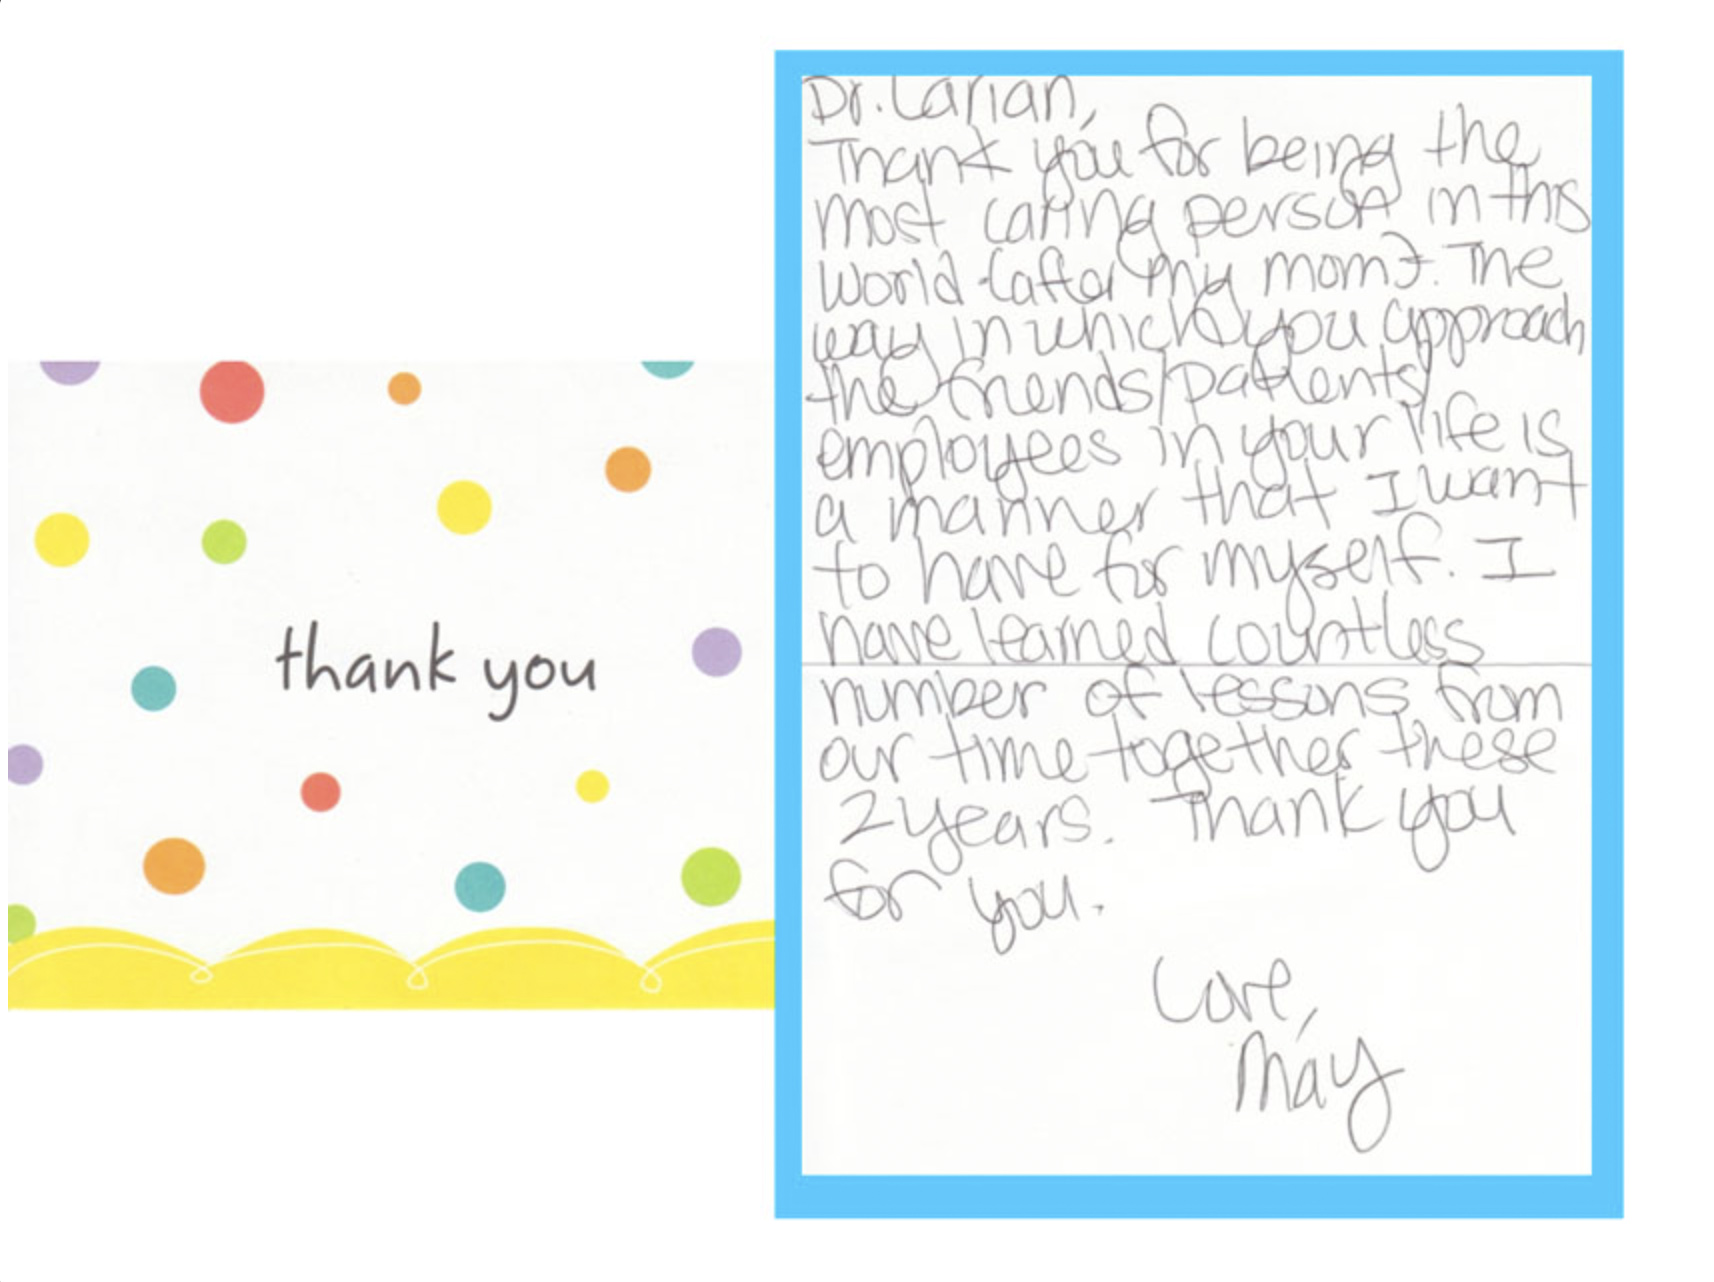 thank you
Dr. Larian,
Thank you for being the
most caring person in this
world (after my mom). The
way in which you approach
the friends/patients/
employees in your life is
a manner that I want
to have for myself. I
have learned countless
number of lessons from
our time together these
2 years. Thank you
for you.
Love,
May